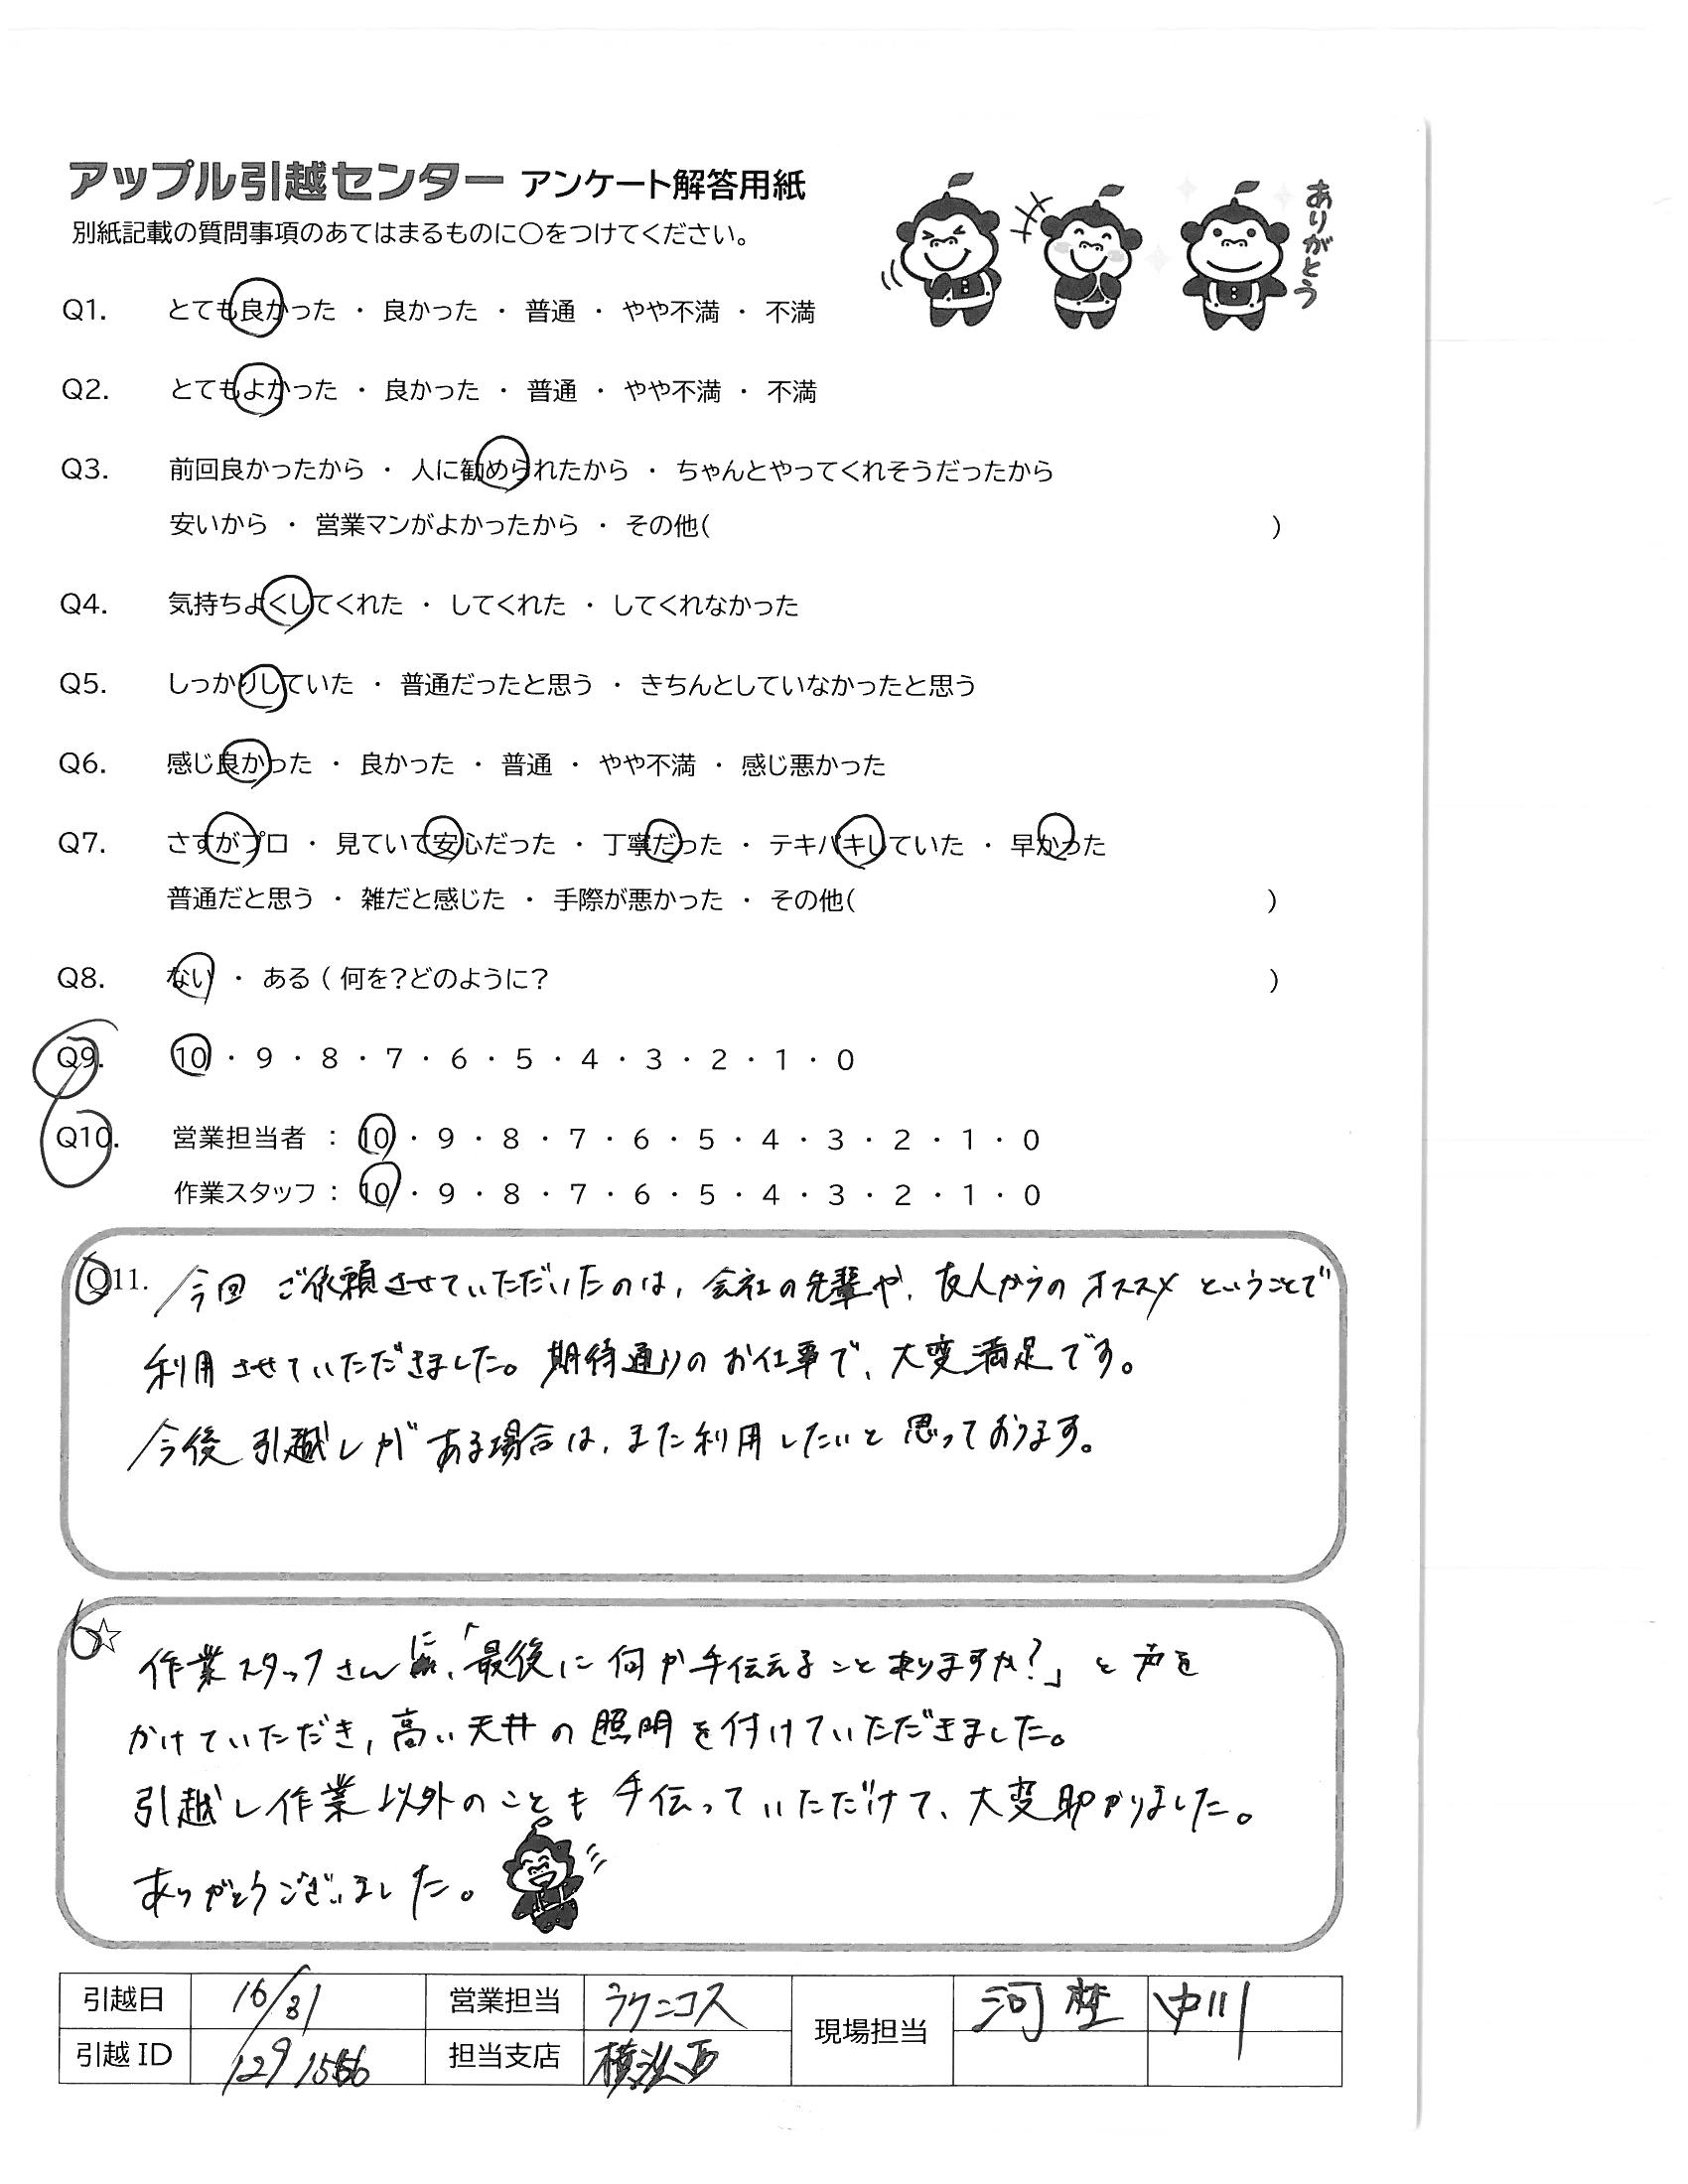 アップル引越センター アンケート解答用紙
別紙記載の質問事項のあてはまるものに〇をつけてください。
ありがとう
Q1. とても良かった ・ 良かった ・ 普通 ・ やや不満 ・ 不満
Q2. とてもよかった ・ 良かった ・ 普通 ・ やや不満 ・ 不満
Q3. 前回良かったから ・ 人に勧められたから ・ ちゃんとやってくれそうだったから
安いから ・ 営業マンがよかったから ・ その他( )
Q4. 気持ちよくしてくれた ・ してくれた ・ してくれなかった
Q5. しっかりしていた ・ 普通だったと思う ・ きちんとしていなかったと思う
Q6. 感じ良かった ・ 良かった ・ 普通 ・ やや不満 ・ 感じ悪かった
Q7. さすがプロ ・ 見ていて安心だった ・ 丁寧だった ・ テキパキしていた ・ 早かった
普通だと思う ・ 雑だと感じた ・ 手際が悪かった ・ その他( )
Q8. ない ・ ある ( 何を?どのように? )
Q9. 10 ・ 9 ・ 8 ・ 7 ・ 6 ・ 5 ・ 4 ・ 3 ・ 2 ・ 1 ・ 0
Q10. 営業担当者 : 10 ・ 9 ・ 8 ・ 7 ・ 6 ・ 5 ・ 4 ・ 3 ・ 2 ・ 1 ・ 0
作業スタッフ : 10 ・ 9 ・ 8 ・ 7 ・ 6 ・ 5 ・ 4 ・ 3 ・ 2 ・ 1 ・ 0
Q11. 今回 ご依頼させていただいたのは、会社の先輩や、友人からのオススメということで
利用させていただきました。期待通りのお仕事で、大変満足です。
今後引越しがある場合は、また利用したいと思っております。
☆ 作業スタッフさんに、「最後に何か手伝えることありますか?」と声を
かけていただき、高い天井の照明を付けていただきました。
引越し作業以外のことも手伝っていただけて、大変助かりました。
ありがとうございました。
引越日 10/31 営業担当 ラケニコス 現場担当 河埜 中川
引越ID 担当支店 横浜西